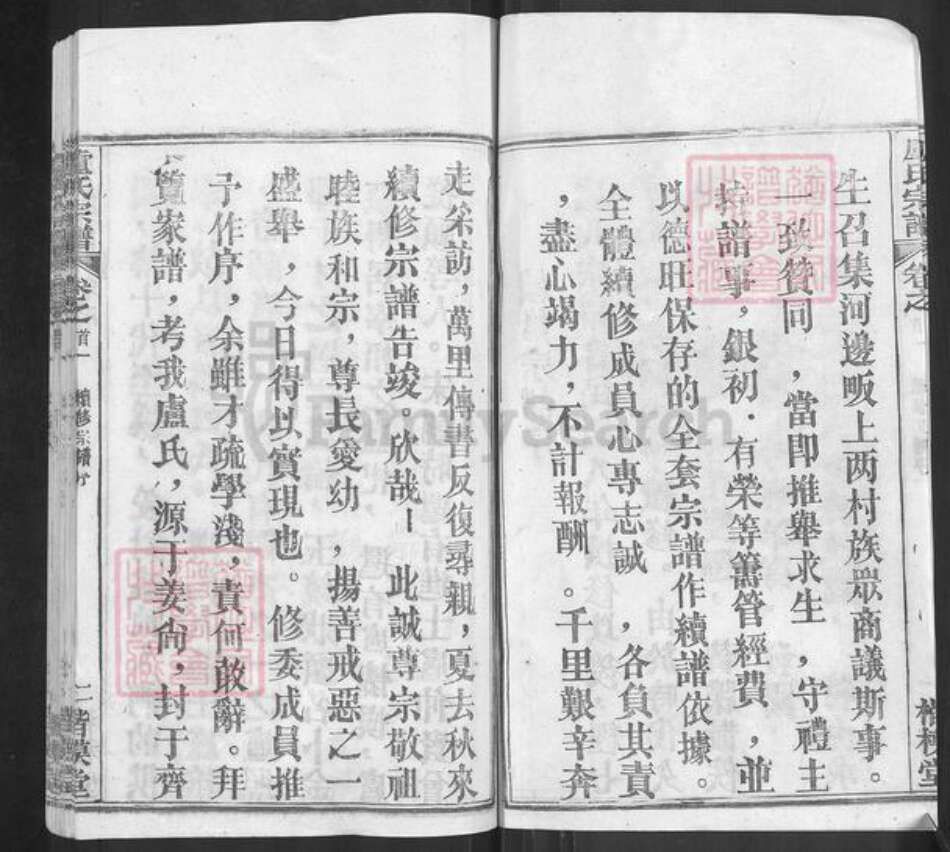 生召集河邊畈上两村族眾商議斯事。
一致贊同，當即推舉求生，守禮主
持譜事，銀初．有榮等籌管經費，並
以德旺保存的全套宗譜作續譜依據。
全體續修成員心專志誠，各負其責
，盡心竭力，不計報酬。千里艱辛奔
走采訪，萬里傳書反復尋親，夏去秋來
續修宗譜告竣。欣哉！此誠尊宗敬祖
睦族和宗，尊長愛幼，揚善戒惡之一
盛舉，今日得以實現也。修委成員推
予作序，余雖才疏學淺，責何敢辭。拜
覽家譜，考我盧氏，源于姜尚，封于齊
盧氏宗譜 卷之 首一 續修宗譜序 二
FamilySearch